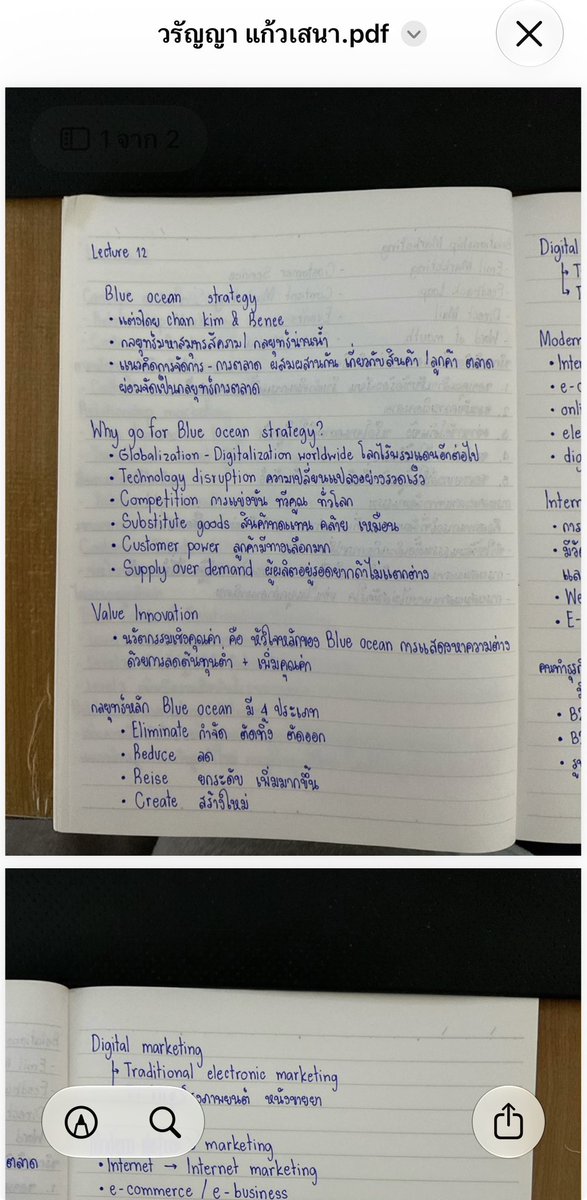 วรัญญา แก้วเสนา.pdf
1 จาก 2
Lecture 12
Blue ocean strategy
• แต่งโดย chan kim & Renee
• กลยุทธ์มหาสมุทรสีคราม / กลยุทธ์น่านน้ำ
• แนวคิดการจัดการ - การตลาด ผสมผสานกัน เกี่ยวกับสินค้า / ลูกค้า ตลาด
ย่อมจัดเป็นกลยุทธ์การตลาด
Why go for Blue ocean strategy?
• Globalization - Digitalization worldwide โลกไร้พรมแดนอีกต่อไป
• Technology disruption ความเปลี่ยนแปลงอย่างรวดเร็ว
• Competition การแข่งขัน ทวีคูณ ทั่วโลก
• Substitute goods สินค้าทดแทน คล้าย เหมือน
• Customer power ลูกค้ามีทางเลือกมาก
• Supply over demand ผู้ผลิตอยู่รอดยากถ้าไม่แตกต่าง
Value Innovation
• นวัตกรรมเชิงคุณค่า คือ หัวใจหลักของ Blue ocean การแสดงหาความต่าง
ด้วยการลดต้นทุนต่ำ + เพิ่มคุณค่า
กลยุทธ์หลัก Blue ocean มี 4 ประเภท
• Eliminate กำจัด ตัดทิ้ง ตัดออก
• Reduce ลด
• Reise ยกระดับ เพิ่มมากขึ้น
• Create สร้างใหม่
Digital
Modern
• Inte
• e-c
• onli
• ele
• dig
Intern
• การ
• มีวัต
และ
• We
• E-
คนทำธุร
• B
• B
Digital marketing
↳ Traditional electronic marketing
ภาพยนต์ หนังขายยา
marketing
• Internet → Internet marketing
• e-commerce / e-business
ตลาด